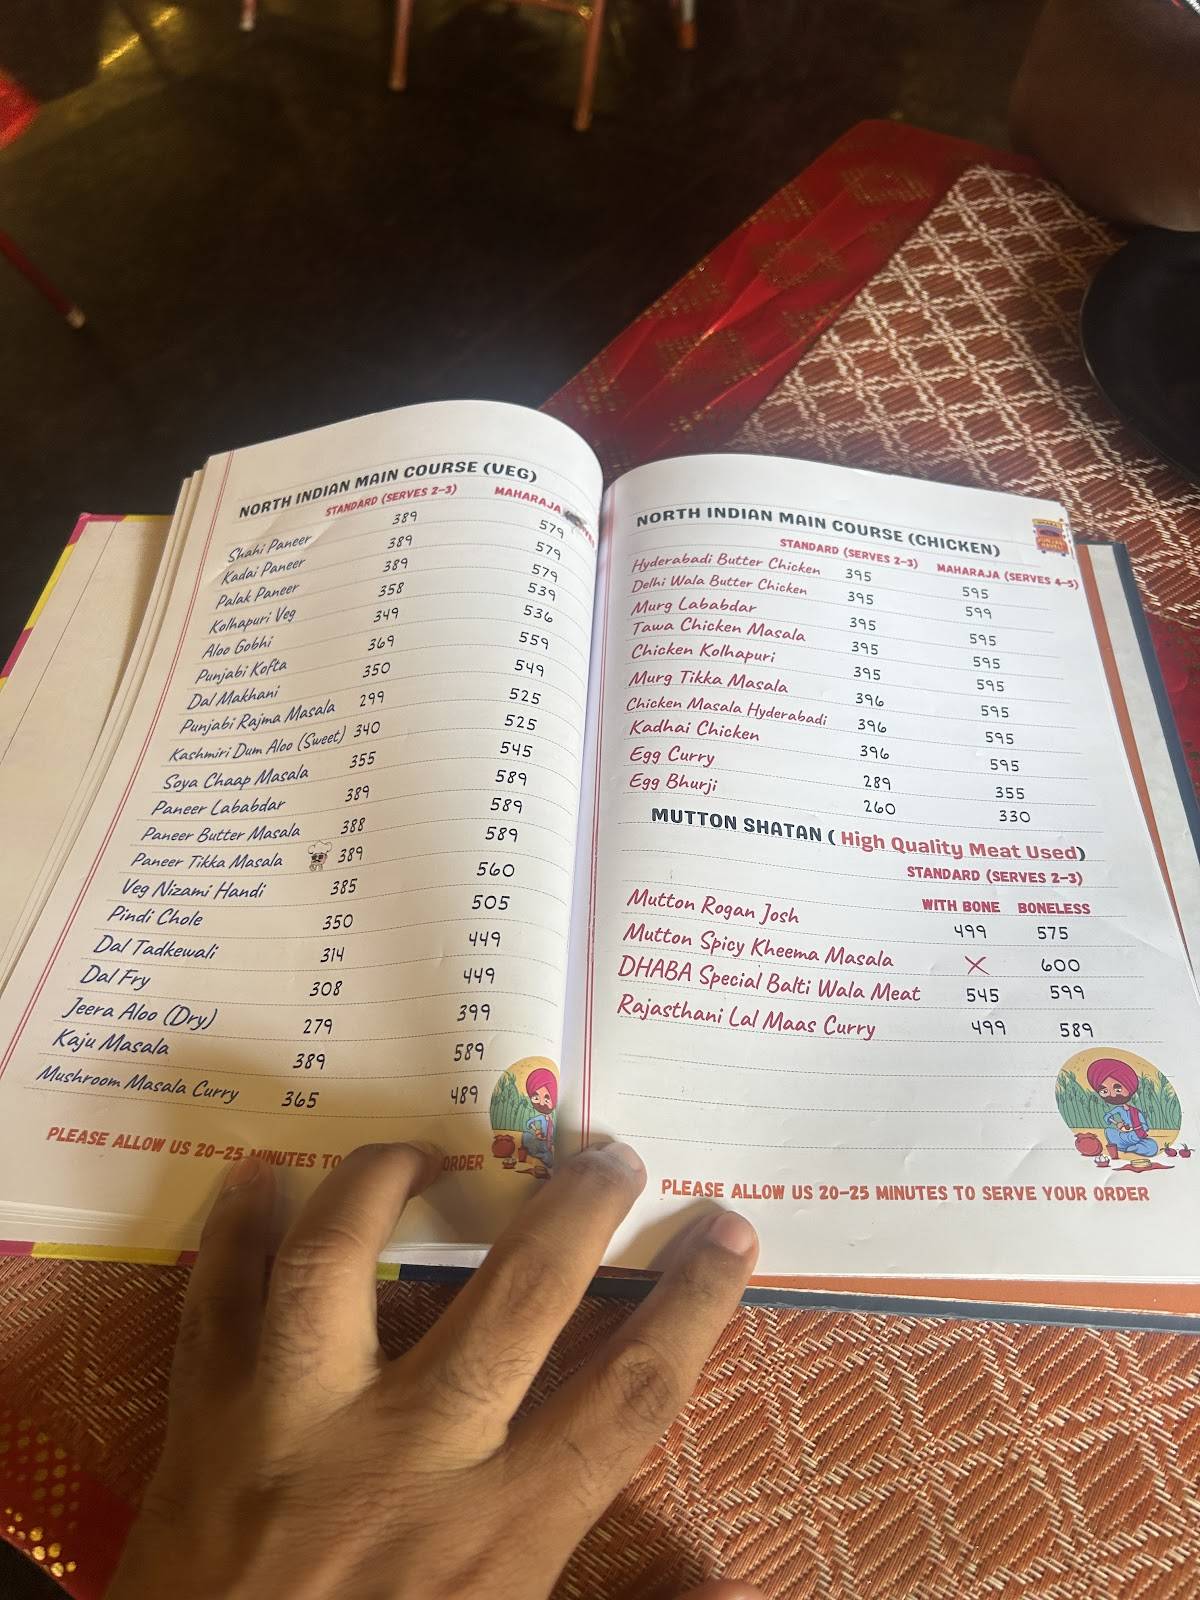 NORTH INDIAN MAIN COURSE (VEG)
STANDARD (SERVES 2-3) MAHARAJA
Shahi Paneer 389 579
Kadai Paneer 389 579
Palak Paneer 389 579
Kolhapuri Veg 358 539
Aloo Gobhi 349 536
Punjabi Kofta 369 559
Dal Makhani 350 549
Punjabi Rajma Masala 299 525
Kashmiri Dum Aloo (Sweet) 340 525
Soya Chaap Masala 355 545
Paneer Lababdar 389 589
Paneer Butter Masala 388 589
Paneer Tikka Masala 389 589
Veg Nizami Handi 385 560
Pindi Chole 350 505
Dal Tadkewali 314 449
Dal Fry 308 449
Jeera Aloo (Dry) 279 399
Kaju Masala 389 589
Mushroom Masala Curry 365 489
PLEASE ALLOW US 20-25 MINUTES TO ORDER
NORTH INDIAN MAIN COURSE (CHICKEN)
STANDARD (SERVES 2-3) MAHARAJA (SERVES 4-5)
Hyderabadi Butter Chicken 395 595
Delhi Wala Butter Chicken 395 599
Murg Lababdar 395 595
Tawa Chicken Masala 395 595
Chicken Kolhapuri 395 595
Murg Tikka Masala 396 595
Chicken Masala Hyderabadi 396 595
Kadhai Chicken 396 595
Egg Curry 289 355
Egg Bhurji 260 330
MUTTON SHATAN ( High Quality Meat Used)
STANDARD (SERVES 2-3)
WITH BONE BONELESS
Mutton Rogan Josh 499 575
Mutton Spicy Kheema Masala X 600
DHABA Special Balti Wala Meat 545 599
Rajasthani Lal Maas Curry 499 589
PLEASE ALLOW US 20-25 MINUTES TO SERVE YOUR ORDER